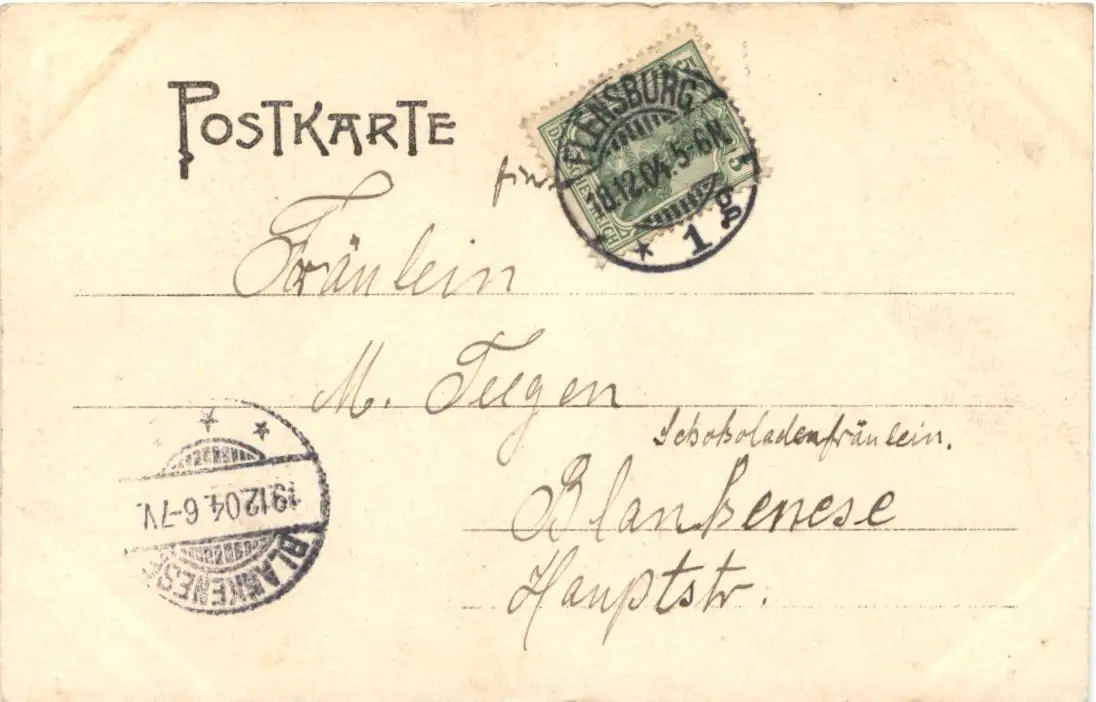 POSTKARTE
FLENSBURG
18.12.04.5-6N.
* * 1 g
5
DEUTSCHES REICH
Fräulein
M. Tiegen
Schokoladenfräulein.
Blankenese
Hauptstr.
19.12.04.6-7V.
BLANKENESE